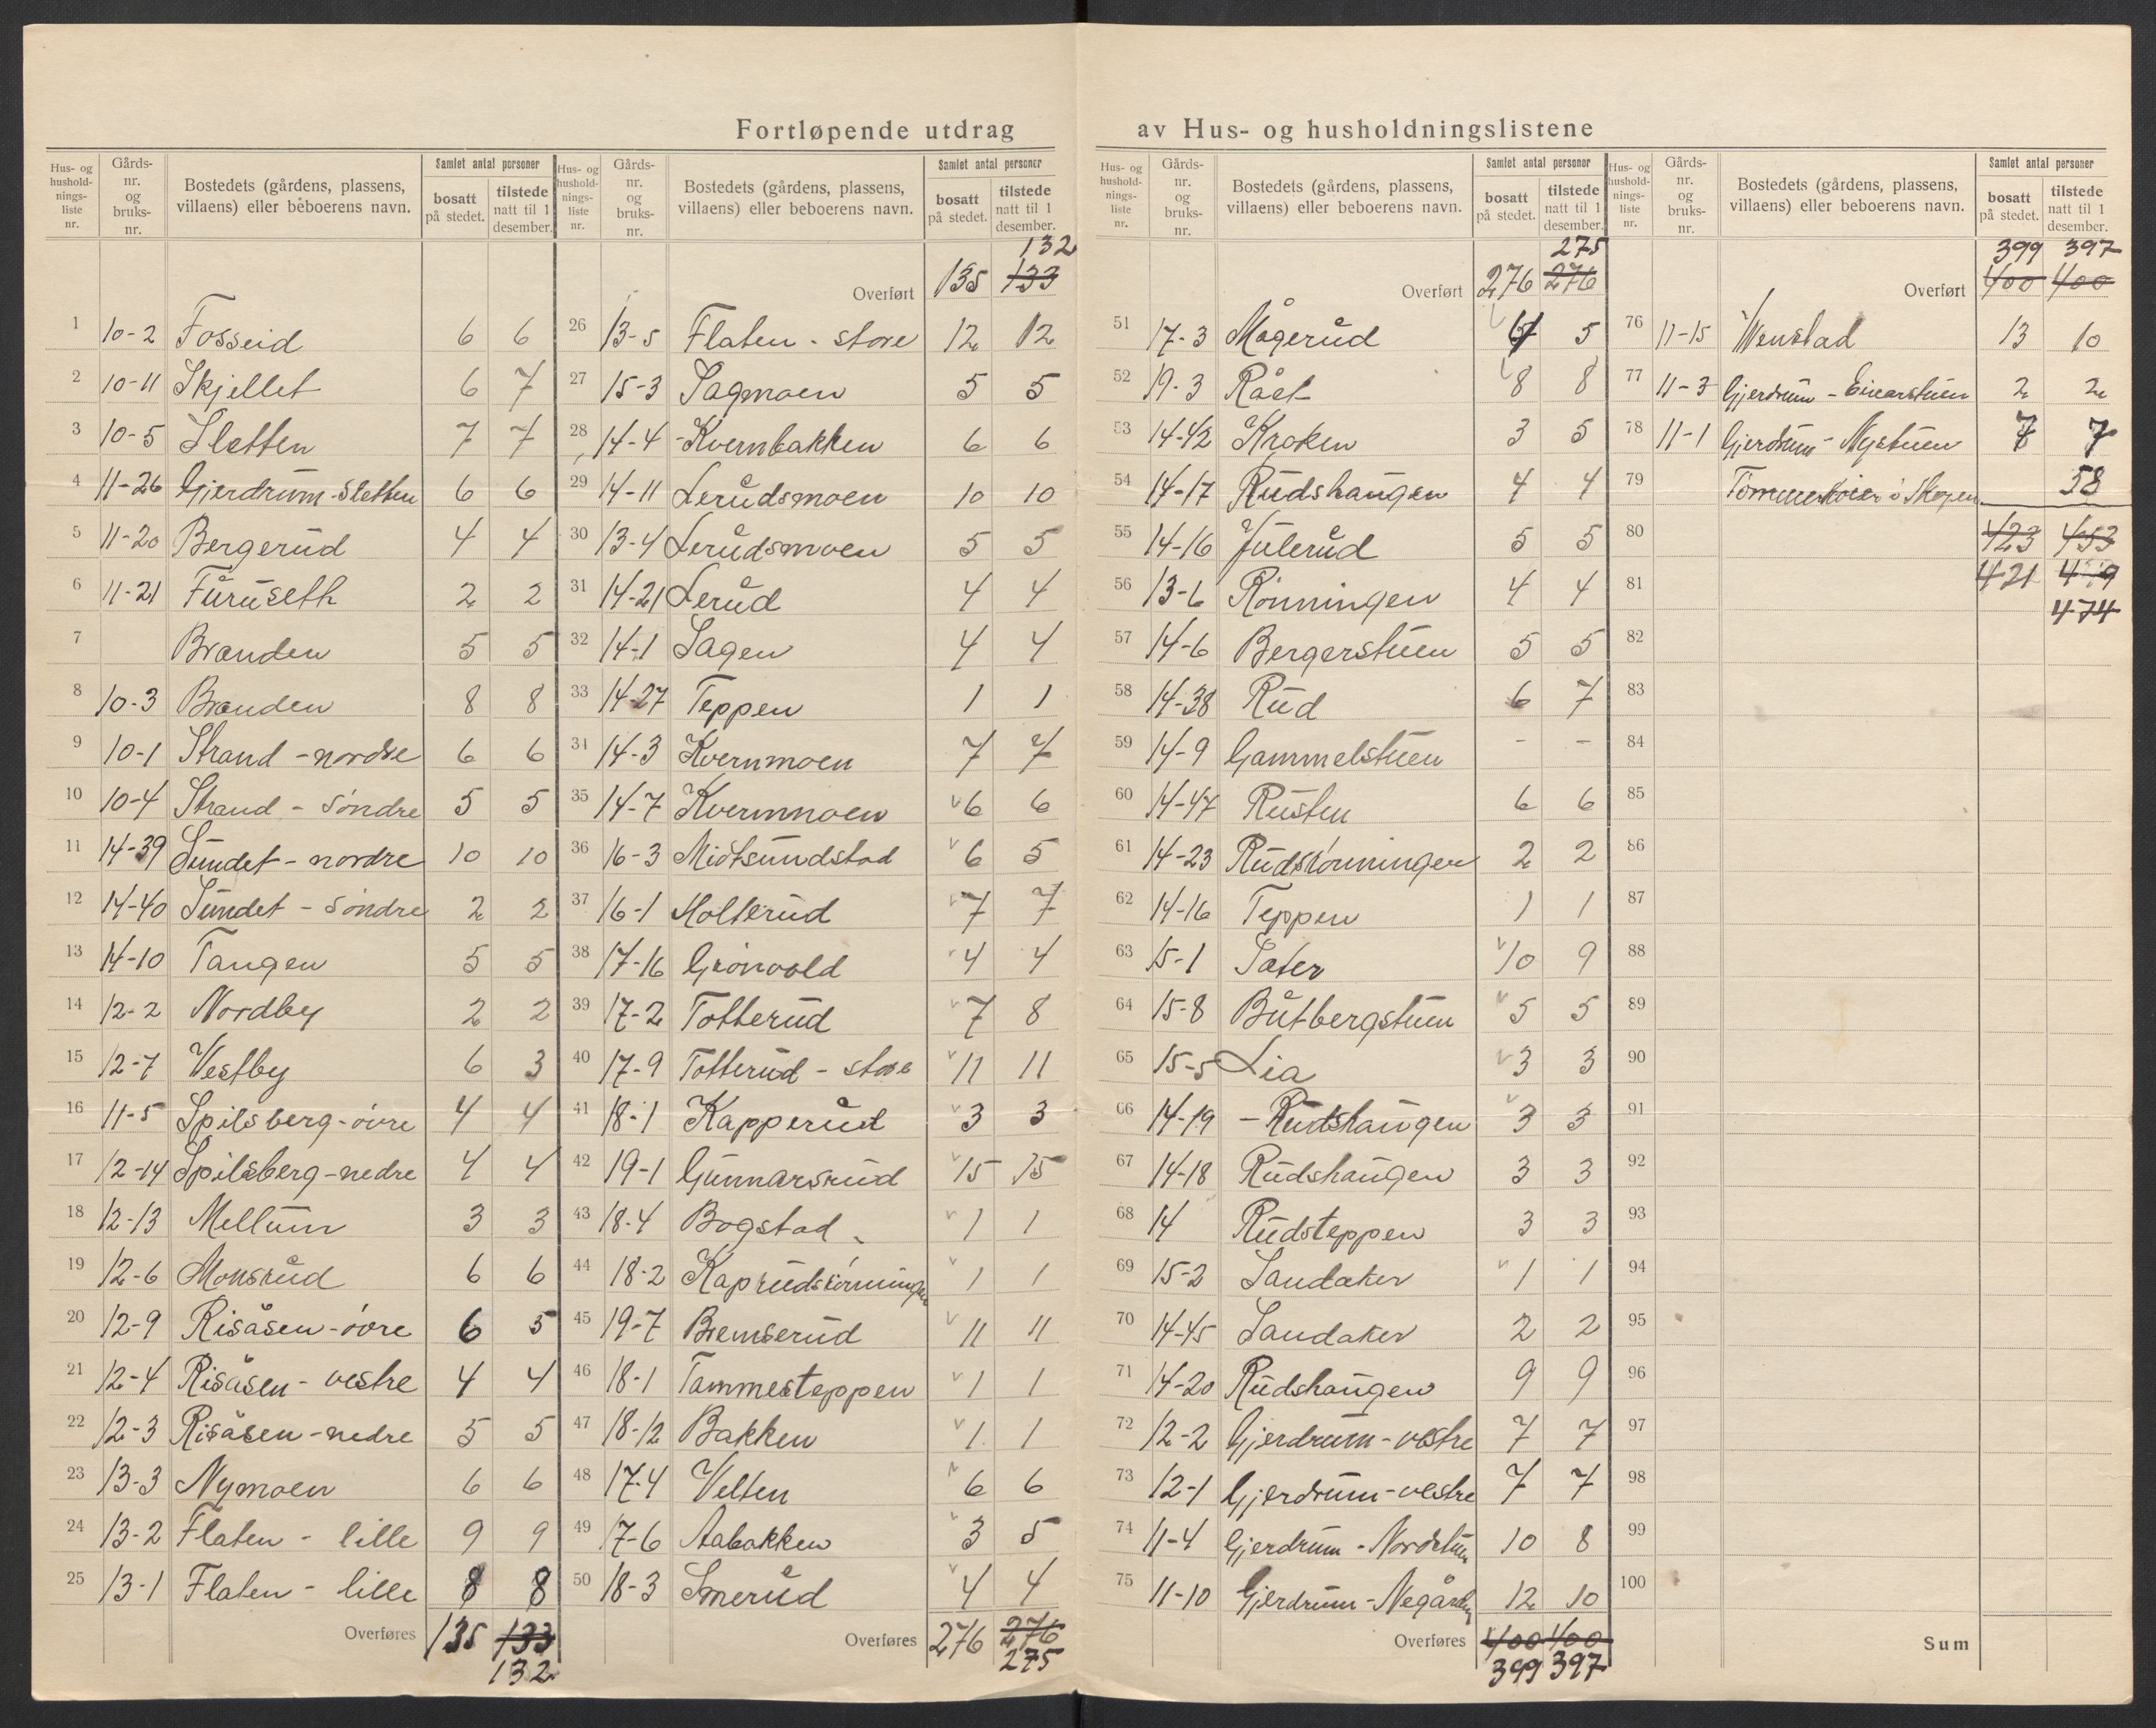 Fortløpende utdrag av Hus- og husholdningslistene
Hus- og hushold-nings-liste nr. | Gårds-nr. og bruks-nr. | Bostedets (gårdens, plassens, villaens) eller beboerens navn. | Samlet antal personer | bosatt på stedet. | tilstede natt til 1 desember.
1 10-2 Fosseid 6 6
2 10-11 Skjellet 6 7
3 10-5 Sletten 7 7
4 11-26 Gjerdrum-Sletten 6 6
5 11-20 Bergerud 4 4
6 11-21 Furuseth 2 2
7 Branden 5 5
8 10-3 Branden 8 8
9 10-1 Strand - nordre 6 6
10 10-4 Strand - søndre 5 5
11 14-39 Sundet - nordre 10 10
12 14-40 Sundet - søndre 2 2
13 14-10 Tangen 5 5
14 12-2 Nordby 2 2
15 12-7 Vestby 6 3
16 11-5 Spilsberg-øvre 4 4
17 12-14 Spilsberg-nedre 4 4
18 12-13 Mellum 3 3
19 12-6 Monsrud 6 6
20 12-9 Risåsen-øvre 6 5
21 12-4 Risåsen - vestre 4 4
22 12-3 Risåsen-nedre 5 5
23 13-3 Nymoen 6 6
24 13-2 Flaten - lille 9 9
25 13-1 Flaten - lille 8 8
Overføres 135 133
132
Hus- og hushold-nings-liste nr. | Gårds-nr. og bruks-nr. | Bostedets (gårdens, plassens, villaens) eller beboerens navn. | Samlet antal personer | bosatt på stedet. | tilstede natt til 1 desember.
132
Overført 135 133
26 13-5 Flaten - store 12 12
27 15-3 Sagmoen 5 5
28 14-4 Kvernbakken 6 6
29 14-11 Lerudsmoen 10 10
30 13-4 Lerudsmoen 5 5
31 14-21 Lerud 4 4
32 14-1 Sagen 4 4
33 14-27 Teppen 1 1
34 14-3 Kvernmoen 7 7
35 14-7 Kvernmoen 6 6
36 16-3 Midtsundstad 6 5
37 16-1 Molterud 7 7
38 17-16 Grønvold 4 4
39 17-2 Totterud 7 8
40 17-9 Totterud - store 11 11
41 18-1 Kapperud 3 3
42 19-1 Gunnarsrud 15 15
43 18-4 Bogstad 1 1
44 18-2 Kaprudsrønningen 1 1
45 19-7 Bremserud 11 11
46 18-1 Tammesteppen 1 1
47 18-12 Bakken 1 1
48 17-4 Velten 6 6
49 17-6 Aabakken 3 5
50 18-3 Smerud 4 4
Overføres 276 276
275
Hus- og hushold-nings-liste nr. | Gårds-nr. og bruks-nr. | Bostedets (gårdens, plassens, villaens) eller beboerens navn. | Samlet antal personer | bosatt på stedet. | tilstede natt til 1 desember.
275
Overført 276 276
51 17-3 Mågerud 5
52 19-3 Rået 8 8
53 14-42 Kroken 3 5
54 14-17 Rudshaugen 4 4
55 14-16 Julerud 5 5
56 13-6 Rønningen 4 4
57 14-6 Bergerstuen 5 5
58 14-38 Rud 6 7
59 14-9 Gammelstuen - -
60 14-47 Rusten 6 6
61 14-23 Rudsrønningen 2 2
62 14-16 Teppen 1 1
63 15-1 Sater 10 9
64 15-8 Butbergstuen 5 5
65 15-5 Lia 3 3
66 14-19 - Rudshaugen 3 3
67 14-18 Rudshaugen 3 3
68 14 Rudsteppen 3 3
69 15-2 Sandaker 1 1
70 14-45 Sandaker 2 2
71 14-20 Rudshaugen 9 9
72 12-2 Gjerdrum-vestre 7 7
73 12-1 Gjerdrum-vestre 7 7
74 11-4 Gjerdrum - Nordstuen 10 8
75 11-10 Gjerdrum - Negården 12 10
Overføres 400 400
399 397
Hus- og hushold-nings-liste nr. | Gårds-nr. og bruks-nr. | Bostedets (gårdens, plassens, villaens) eller beboerens navn. | Samlet antal personer | bosatt på stedet. | tilstede natt til 1 desember.
399 397
Overført 400 400
76 11-15 Wenstad 13 10
77 11-3 Gjerdrum - Einarstuen 2 2
78 11-1 Gjerdrum - Nystuen 7 7
79 Tømmerkoier i Skogen 58
80 423 453
81 421 479
474
82
83
84
85
86
87
88
89
90
91
92
93
94
95
96
97
98
99
100
Sum